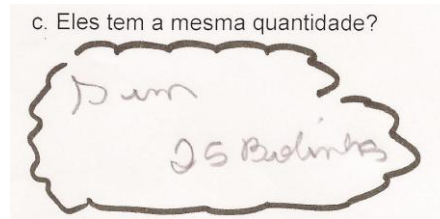 c. Eles tem a mesma quantidade?
Sim
25 Bolinhas